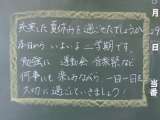 充実した夏休みを過ごせたでしょうか
本日から いよいよ 二学期です。
勉強に 運動会 音楽祭など
何事にも 楽しみながら 一日一日を
大切に 過ごしていきましょう!
月
日
当番